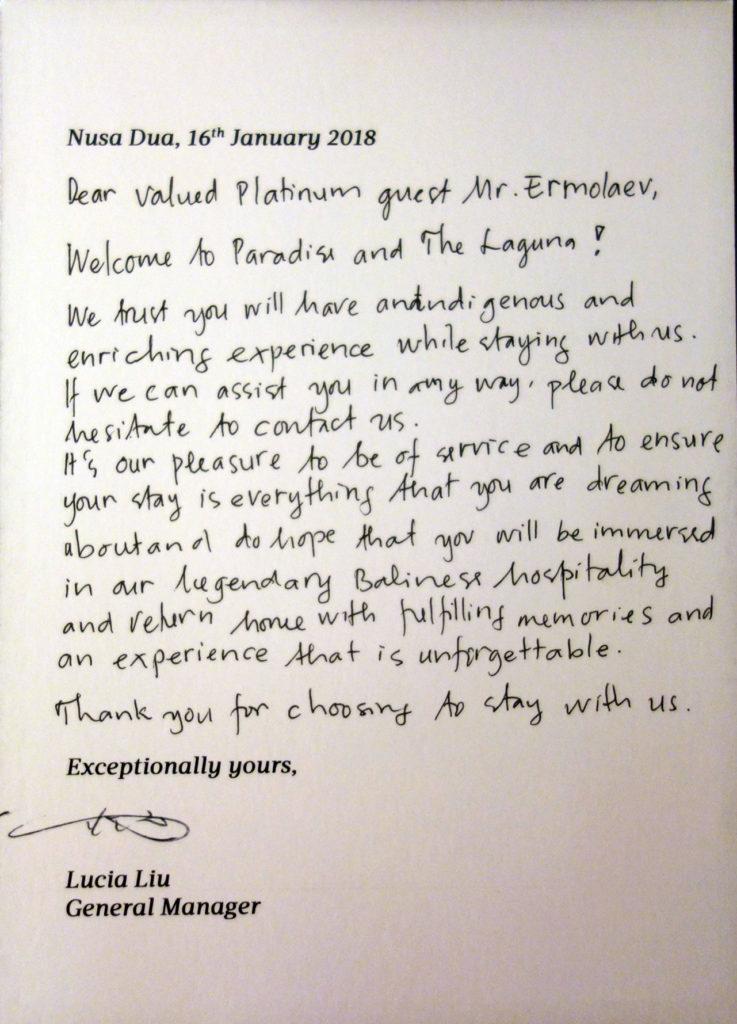 Nusa Dua, 16th January 2018
Dear valued Platinum guest Mr. Ermolaev,
Welcome to Paradise and The Laguna!
We trust you will have an indigenous and
enriching experience while staying with us.
If we can assist you in any way, please do not
hesitate to contact us.
It's our pleasure to be of service and to ensure
your stay is everything that you are dreaming
about and do hope that you will be immersed
in our legendary Balinese hospitality
and return home with fulfilling memories and
an experience that is unforgettable.
Thank you for choosing to stay with us.
Exceptionally yours,
Lucia Liu
General Manager